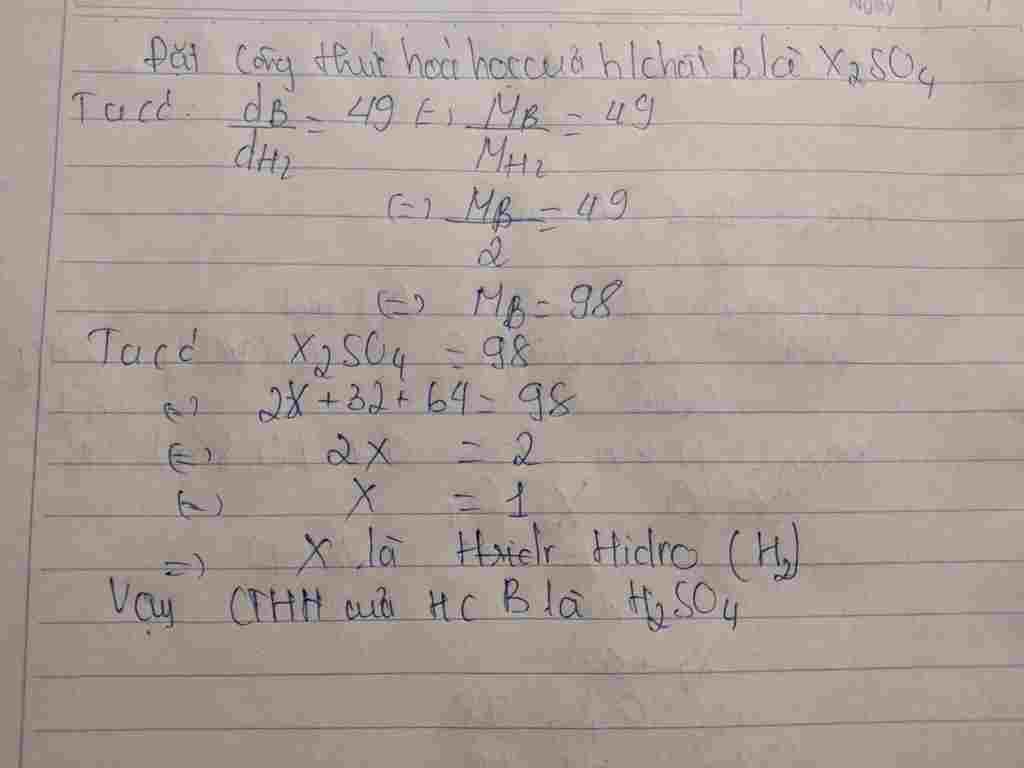 Ngày
Đặt công thức hoá học của h/chất B là X₂SO₄
Ta có: dB/dH₂ = 49 (=) MB/MH₂ = 49
(=) MB/2 = 49
(=) MB = 98
Ta có X₂SO₄ = 98
(=) 2X + 32 + 64 = 98
(=) 2X = 2
(=) X = 1
=) X là Hidro (H₂)
Vậy CTHH của HC B là H₂SO₄